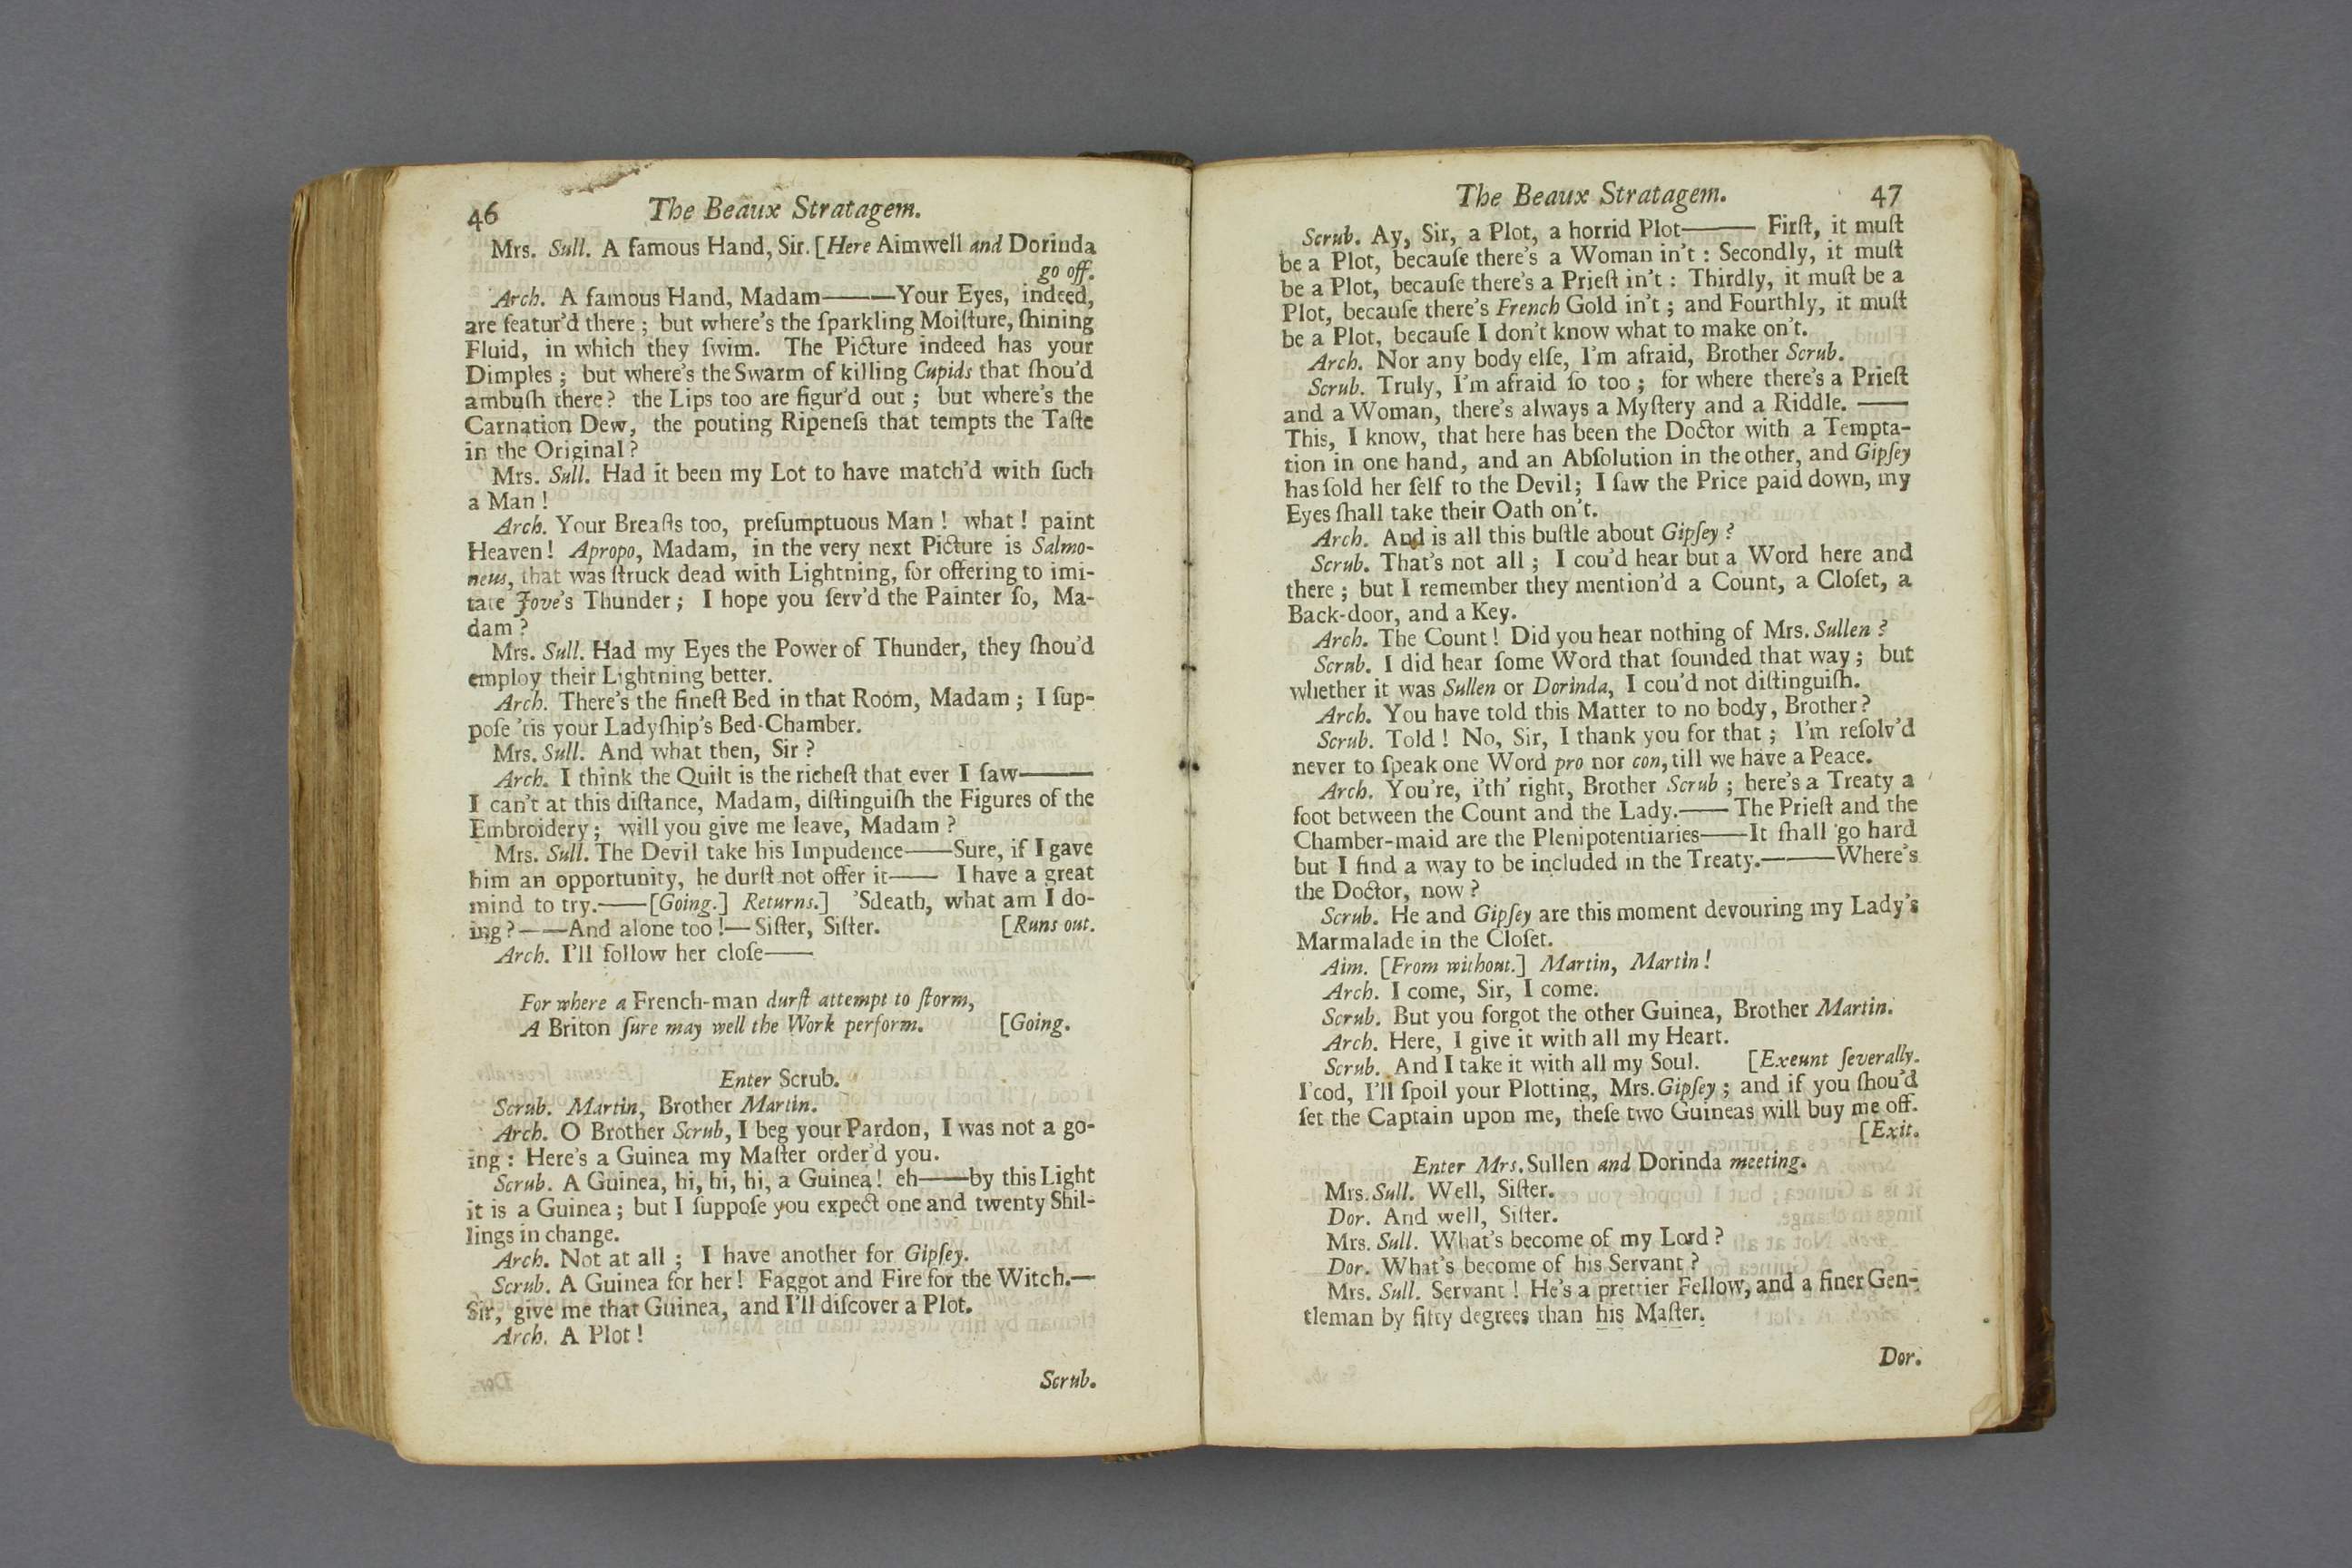 46 The Beaux Stratagem.
Mrs. Sull. A famous Hand, Sir. [Here Aimwell and Dorinda
go off.
Arch. A famous Hand, Madam———Your Eyes, indeed,
are featur'd there; but where's the ſparkling Moiſture, ſhining
Fluid, in which they ſwim. The Picture indeed has your
Dimples; but where's the Swarm of killing Cupids that ſhou'd
ambuſh there? the Lips too are figur'd out; but where's the
Carnation Dew, the pouting Ripeneſs that tempts the Taſte
in the Original?
Mrs. Sull. Had it been my Lot to have match'd with ſuch
a Man!
Arch. Your Breaſts too, preſumptuous Man! what! paint
Heaven! Apropo, Madam, in the very next Picture is Salmo-
neus, that was ſtruck dead with Lightning, for offering to imi-
tate Jove's Thunder; I hope you ſerv'd the Painter ſo, Ma-
dam?
Mrs. Sull. Had my Eyes the Power of Thunder, they ſhou'd
employ their Lightning better.
Arch. There's the fineſt Bed in that Room, Madam; I ſup-
poſe 'tis your Ladyſhip's Bed-Chamber.
Mrs. Sull. And what then, Sir?
Arch. I think the Quilt is the richeſt that ever I ſaw———
I can't at this diſtance, Madam, diſtinguiſh the Figures of the
Embroidery; will you give me leave, Madam?
Mrs. Sull. The Devil take his Impudence——Sure, if I gave
him an opportunity, he durſt not offer it—— I have a great
mind to try.——[Going.] Returns.] 'Sdeath, what am I do-
ing?——And alone too!—Siſter, Siſter. [Runs out.
Arch. I'll follow her cloſe——
For where a French-man durſt attempt to ſtorm,
A Briton ſure may well the Work perform. [Going.
Enter Scrub.
Scrub. Martin, Brother Martin.
Arch. O Brother Scrub, I beg your Pardon, I was not a go-
ing: Here's a Guinea my Maſter order'd you.
Scrub. A Guinea, hi, hi, hi, a Guinea! eh——by this Light
it is a Guinea; but I ſuppoſe you expect one and twenty Shil-
lings in change.
Arch. Not at all; I have another for Gipſey.
Scrub. A Guinea for her! Faggot and Fire for the Witch.—
Sir, give me that Guinea, and I'll diſcover a Plot.
Arch. A Plot!
Scrub.
The Beaux Stratagem. 47
Scrub. Ay, Sir, a Plot, a horrid Plot——— Firſt, it muſt
be a Plot, becauſe there's a Woman in't: Secondly, it muſt
be a Plot, becauſe there's a Prieſt in't: Thirdly, it muſt be a
Plot, becauſe there's French Gold in't; and Fourthly, it muſt
be a Plot, becauſe I don't know what to make on't.
Arch. Nor any body elſe, I'm afraid, Brother Scrub.
Scrub. Truly, I'm afraid ſo too; for where there's a Prieſt
and a Woman, there's always a Myſtery and a Riddle. ——
This, I know, that here has been the Doctor with a Tempta-
tion in one hand, and an Abſolution in the other, and Gipſey
has ſold her ſelf to the Devil; I ſaw the Price paid down, my
Eyes ſhall take their Oath on't.
Arch. And is all this buſtle about Gipſey?
Scrub. That's not all; I cou'd hear but a Word here and
there; but I remember they mention'd a Count, a Cloſet, a
Back-door, and a Key.
Arch. The Count! Did you hear nothing of Mrs. Sullen?
Scrub. I did hear ſome Word that ſounded that way; but
whether it was Sullen or Dorinda, I cou'd not diſtinguiſh.
Arch. You have told this Matter to no body, Brother?
Scrub. Told! No, Sir, I thank you for that; I'm reſolv'd
never to ſpeak one Word pro nor con, till we have a Peace.
Arch. You're, i'th' right, Brother Scrub; here's a Treaty a
foot between the Count and the Lady.—— The Prieſt and the
Chamber-maid are the Plenipotentiaries——It ſhall go hard
but I find a way to be included in the Treaty.———Where's
the Doctor, now?
Scrub. He and Gipſey are this moment devouring my Lady's
Marmalade in the Cloſet.
Aim. [From without.] Martin, Martin!
Arch. I come, Sir, I come.
Scrub. But you forgot the other Guinea, Brother Martin.
Arch. Here, I give it with all my Heart.
Scrub. And I take it with all my Soul. [Exeunt ſeverally.
I'cod, I'll ſpoil your Plotting, Mrs. Gipſey; and if you ſhou'd
ſet the Captain upon me, theſe two Guineas will buy me off.
[Exit.
Enter Mrs. Sullen and Dorinda meeting.
Mrs. Sull. Well, Siſter.
Dor. And well, Siſter.
Mrs. Sull. What's become of my Lord?
Dor. What's become of his Servant?
Mrs. Sull. Servant! He's a prettier Fellow, and a finer Gen-
tleman by fifty degrees than his Maſter.
Dor.